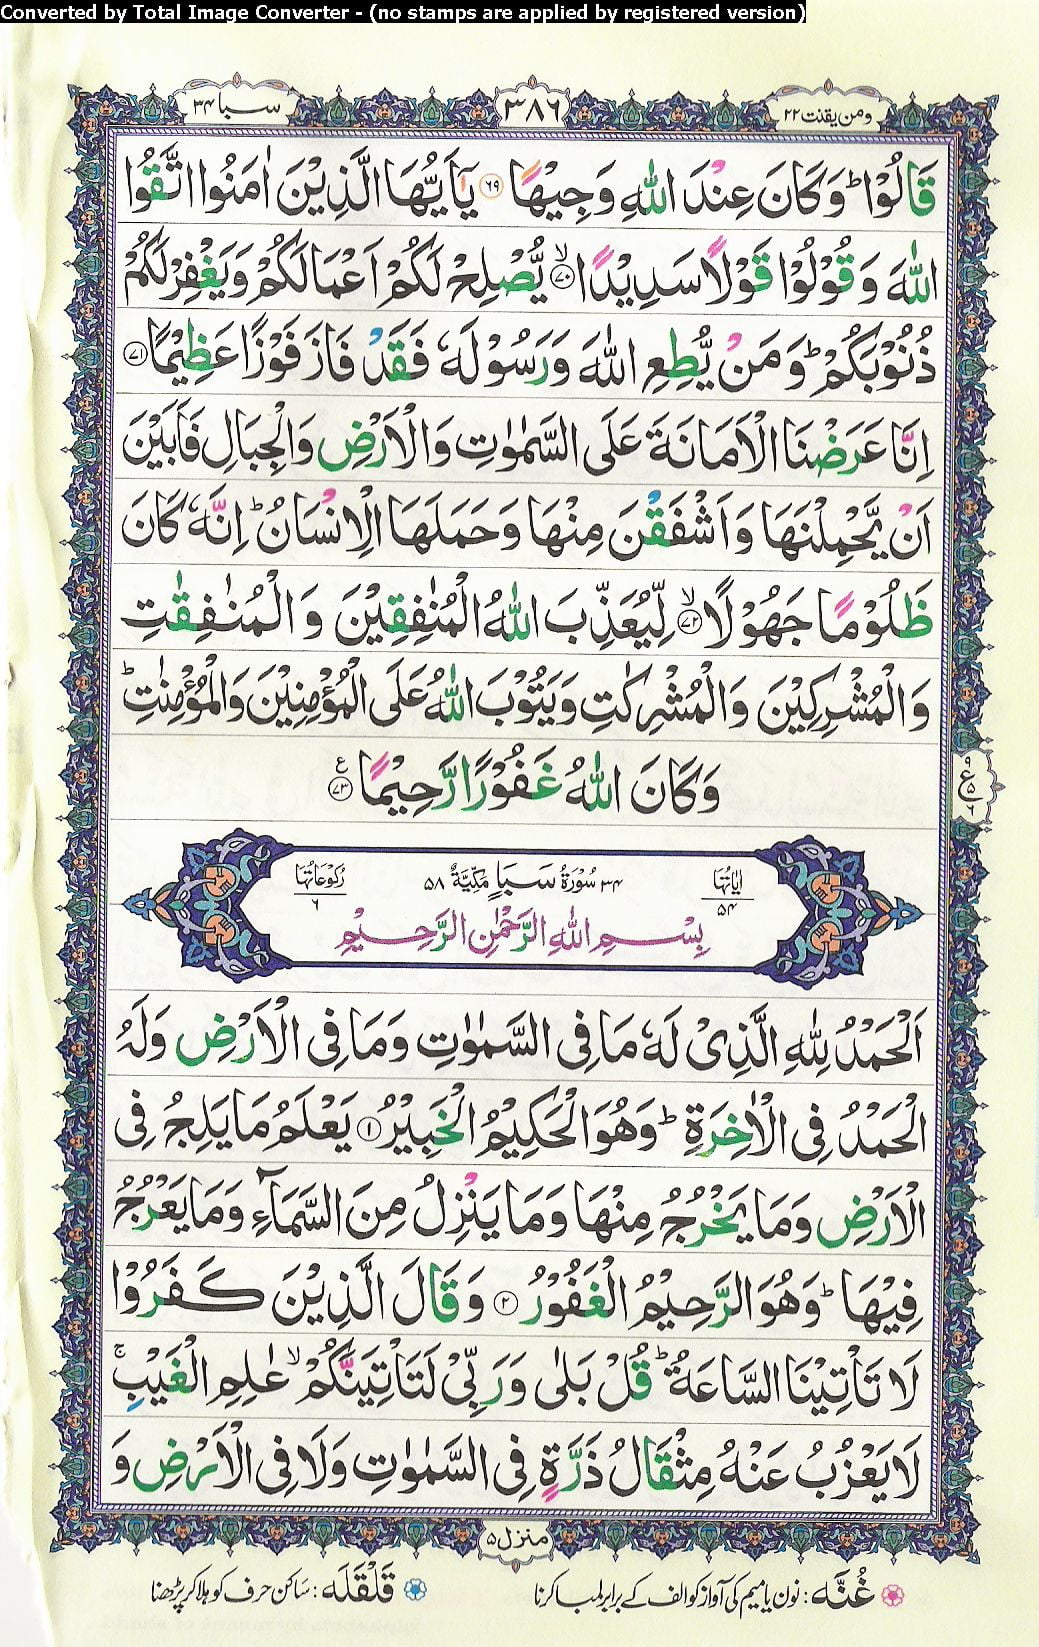 Converted by Total Image Converter - (no stamps are applied by registered version)
ومن یقنت ۲۲ ۳۸۶ سبا ۳۴
قَالُوْا ؕ وَكَانَ عِنْدَ اللّٰهِ وَجِيْهًا ۶۹ يٰۤاَيُّهَا الَّذِيْنَ اٰمَنُوا اتَّقُوا
اللّٰهَ وَقُوْلُوْا قَوْلًا سَدِيْدًا ۙ۷۰ يُّصْلِحْ لَكُمْ اَعْمَالَكُمْ وَيَغْفِرْ لَكُمْ
ذُنُوْبَكُمْ ؕ وَمَنْ يُّطِعِ اللّٰهَ وَرَسُوْلَهٗ فَقَدْ فَازَ فَوْزًا عَظِيْمًا ۷۱
اِنَّا عَرَضْنَا الْاَمَانَةَ عَلَى السَّمٰوٰتِ وَالْاَرْضِ وَالْجِبَالِ فَاَبَيْنَ
اَنْ يَّحْمِلْنَهَا وَاَشْفَقْنَ مِنْهَا وَحَمَلَهَا الْاِنْسَانُ ؕ اِنَّهٗ كَانَ
ظَلُوْمًا جَهُوْلًا ۙ۷۲ لِّيُعَذِّبَ اللّٰهُ الْمُنٰفِقِيْنَ وَالْمُنٰفِقٰتِ
وَالْمُشْرِكِيْنَ وَالْمُشْرِكٰتِ وَيَتُوْبَ اللّٰهُ عَلَى الْمُؤْمِنِيْنَ وَالْمُؤْمِنٰتِ ؕ
وَكَانَ اللّٰهُ غَفُوْرًا رَّحِيْمًا ۷۳ ع
ع ۹ ۵ ۶
اٰيَاتُهَا ۵۴ ۳۴ سُوْرَةُ سَبَاٍ مَكِّيَّةٌ ۵۸ رُكُوْعَاتُهَا ۶
بِسْمِ اللّٰهِ الرَّحْمٰنِ الرَّحِيْمِ
اَلْحَمْدُ لِلّٰهِ الَّذِىْ لَهٗ مَا فِى السَّمٰوٰتِ وَمَا فِى الْاَرْضِ وَلَهُ
الْحَمْدُ فِى الْاٰخِرَةِ ؕ وَهُوَ الْحَكِيْمُ الْخَبِيْرُ ۱ يَعْلَمُ مَا يَلِجُ فِى
الْاَرْضِ وَمَا يَخْرُجُ مِنْهَا وَمَا يَنْزِلُ مِنَ السَّمَآءِ وَمَا يَعْرُجُ
فِيْهَا ؕ وَهُوَ الرَّحِيْمُ الْغَفُوْرُ ۲ وَقَالَ الَّذِيْنَ كَفَرُوْا
لَا تَاْتِيْنَا السَّاعَةُ ؕ قُلْ بَلٰى وَرَبِّىْ لَتَاْتِيَنَّكُمْ ۙ عٰلِمِ الْغَيْبِ ۚ
لَا يَعْزُبُ عَنْهُ مِثْقَالُ ذَرَّةٍ فِى السَّمٰوٰتِ وَلَا فِى الْاَرْضِ وَ
منزل ۵
غُنَّه : نون یا میم کی آواز کو الف کے برابر لمبا کرنا قَلْقَلَه : ساکن حرف کو ہلا کر پڑھنا